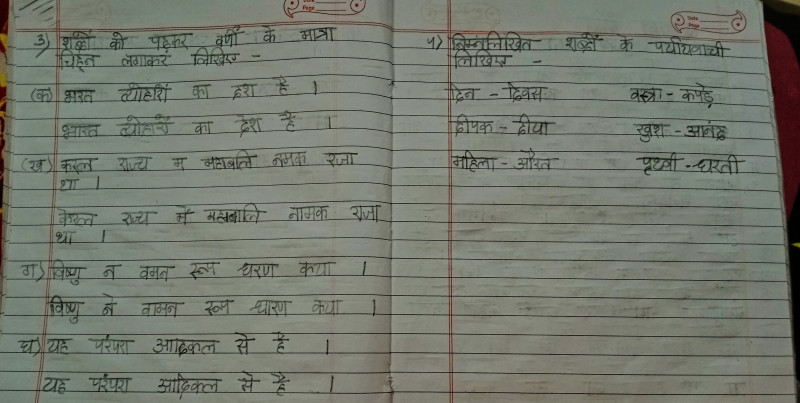 ३) शब्दों को पढ़कर वर्णों के मात्रा
चिह्न लगाकर लिखिए -
(क) भरत त्योहारों का दश है ।
भारत त्योहारों का देश है ।
(ख) करल राज्य म महाबलि नमक राजा
था ।
केरल राज्य में महाबलि नामक राजा
था ।
ग) विष्णु न वमन रूप धरण कया ।
विष्णु ने वामन रूप धारण कया ।
घ) यह परंपरा आदिकल से है ।
यह परंपरा आदिकल से है ।
Date
Page
५) निम्नलिखित शब्दों के पर्यायवाची
लिखिए -
दिन - दिवस वस्त्रा - कपड़े
दीपक - दीया खुश - आनंद
महिला - औरत पृथ्वी - धरती
Date
Page